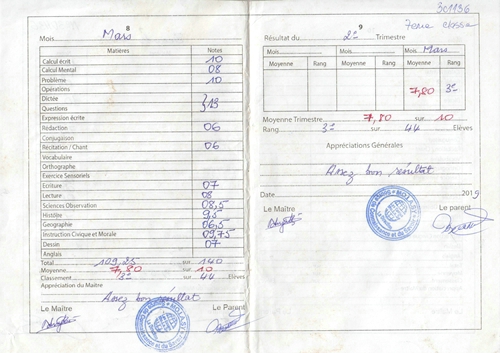 8
Mois Mars
Matières Notes
Calcul écrit 10
Calcul Mental 08
Problème 10
Opérations
Dictée
Questions } 13
Expression écrite
Rédaction 06
Conjugaison
Récitation / Chant 06
Vocabulaire
Orthographe
Exercice Sensoriels
Ecriture 07
Lecture 08
Sciences Observation 08,5
Histoire 9,5
Géographie 06,5
Instruction Civique et Morale 09,75
Dessin 07
Anglais
Total 109,25 sur 140
Moyenne 7,80 sur 10
Classement 3e sur 44 Elèves
Appréciation du Maitre
Assez bon résultat
Le Maître Le Parent
301196
9
7ème classe
Résultat du 2e Trimestre
Mois Mois Mois Mars
Moyenne Rang Moyenne Rang Moyenne Rang
7,80 3e
Moyenne Trimestre 7,80 sur 10
Rang 3e sur 44 Elèves
Appréciations Générales
Assez bon résultat
Date 2019
Le Maître Le parent